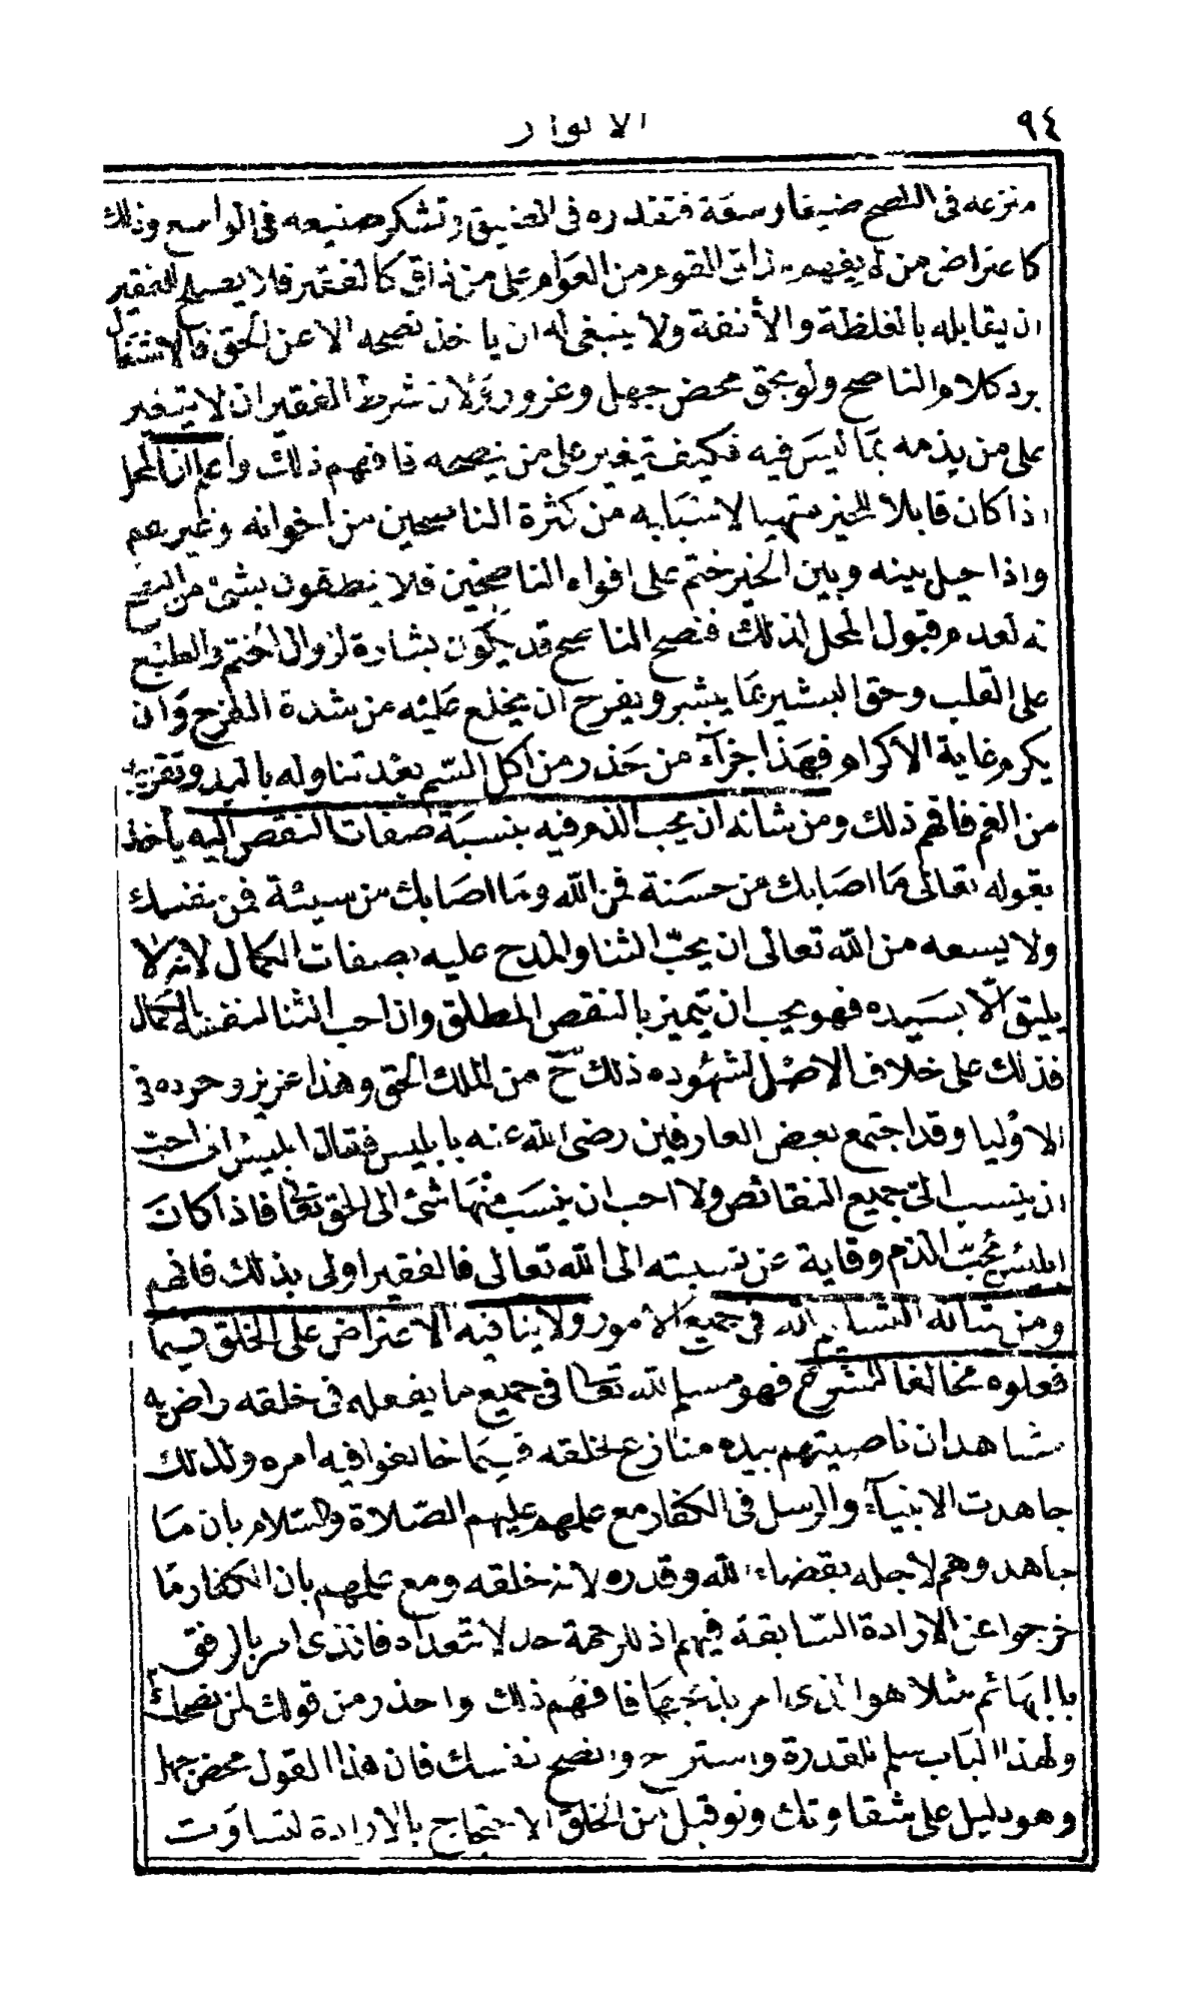 ٩٤
الانوار
منزعه في النصح ضيقا وسعة فتعذره في الضيق وتشكر صنيعه في الواسع وذلك
كاعتراض من لا يفهم مذاق القوم من العوام على من ذاق كالفقير فلا يصلح للفقير
ان يقابله بالغلظة والأنفة ولا ينبغي له ان ياخذ نصحه الا عن الحق فالاشتغال
برد كلام الناصح ولو بحق محض جهل وغرور لان شرط الفقير ان لا يتغير
على من يذمه بما ليس فيه فكيف يتغير على من ينصحه فافهم ذلك واعلم ان المحل
اذا كان قابلا للخير متهيا لاسبابه من كثرة الناصحين من اخوانه وغيرهم
واذا حيل بينه وبين الخير ختم على افواه الناصحين فلا ينطقون بشئ من النصح
له لعدم قبول المحل لذلك فنصح الناصح قد يكون بشارة لزوال الختم والطبع
على القلب وحق البشير بما يبشر ويفرح ان يخلع عليه من شدة الفرح وان
يكرم غاية الأكرام فهذا جزآء من حذر من اكل السم بعد تناوله باليد وتقريبه
من الفم فافهم ذلك ومن شانه ان يحب الذم فيه بنسبة صفات النقص اليه يأخذ
بقوله تعالى ما اصابك من حسنة فمن الله وما اصابك من سيئة فمن نفسك
ولا يسعه من الله تعالى ان يحب الثنا والمدح عليه بصفات الكمال لانه لا
يليق الا بسيده فهو يحب ان يتميز بالنقص المطلق وان احب الثنا لنفسه بالكمال
فذلك على خلاف الاصل لشهوده ذلك ح من الملك الحق وهذا عزيز وجوده في
الاوليا وقد اجتمع بعض العارفين رضى الله عنه بابليس فقال ابليس اني احب
ان ينسب الي جميع النقائص ولا احب ان ينسب منها شئ الى الحق تعا فاذا كان
ابليس يحب الذم وقاية عن نسبته الى الله تعالى فالفقير اولى بذلك فافهم
ومن شانه التسليم لله في جميع الامور ولا ينافيه الاعتراض على الخلق فيما
فعلوه مخالفا للشرع فهو مسلم لله تعا في جميع ما يفعله في خلقه راض به
شاهد ان ناصيتهم بيده منازع لخلقه فيما خالفوا فيه امره ولذلك
جاهدت الانبيآء والرسل في الكفار مع علمهم عليهم الصلاة والسلام بان ما
جاهدوهم لاجله بقضاء الله وقدره لانه خلقه ومع علمهم بان الكفار ما
خرجوا عن الارادة السابقة فيهم اذ للرحمة حد لا تتعداه فالذي امر بالرفق
بالبهائم مثلا هو الذى امر بذبحها فافهم ذلك واحذر من قولك لمن نصحك
ولهذا الباب سلم للقدرة واسترح وانصح نفسك فان هذا القول محض جهل
وهو دليل على شقاوتك ولو قبل من الخلق الاحتجاج بالارادة لتساوت